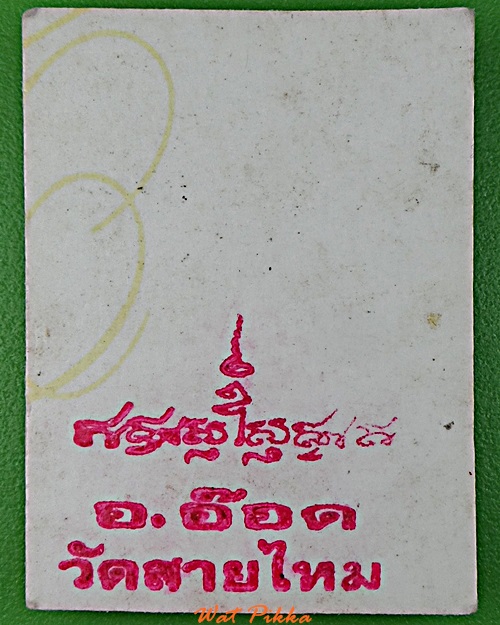 อ. อ๊อด
วัดสายไหม
Wat Pikka